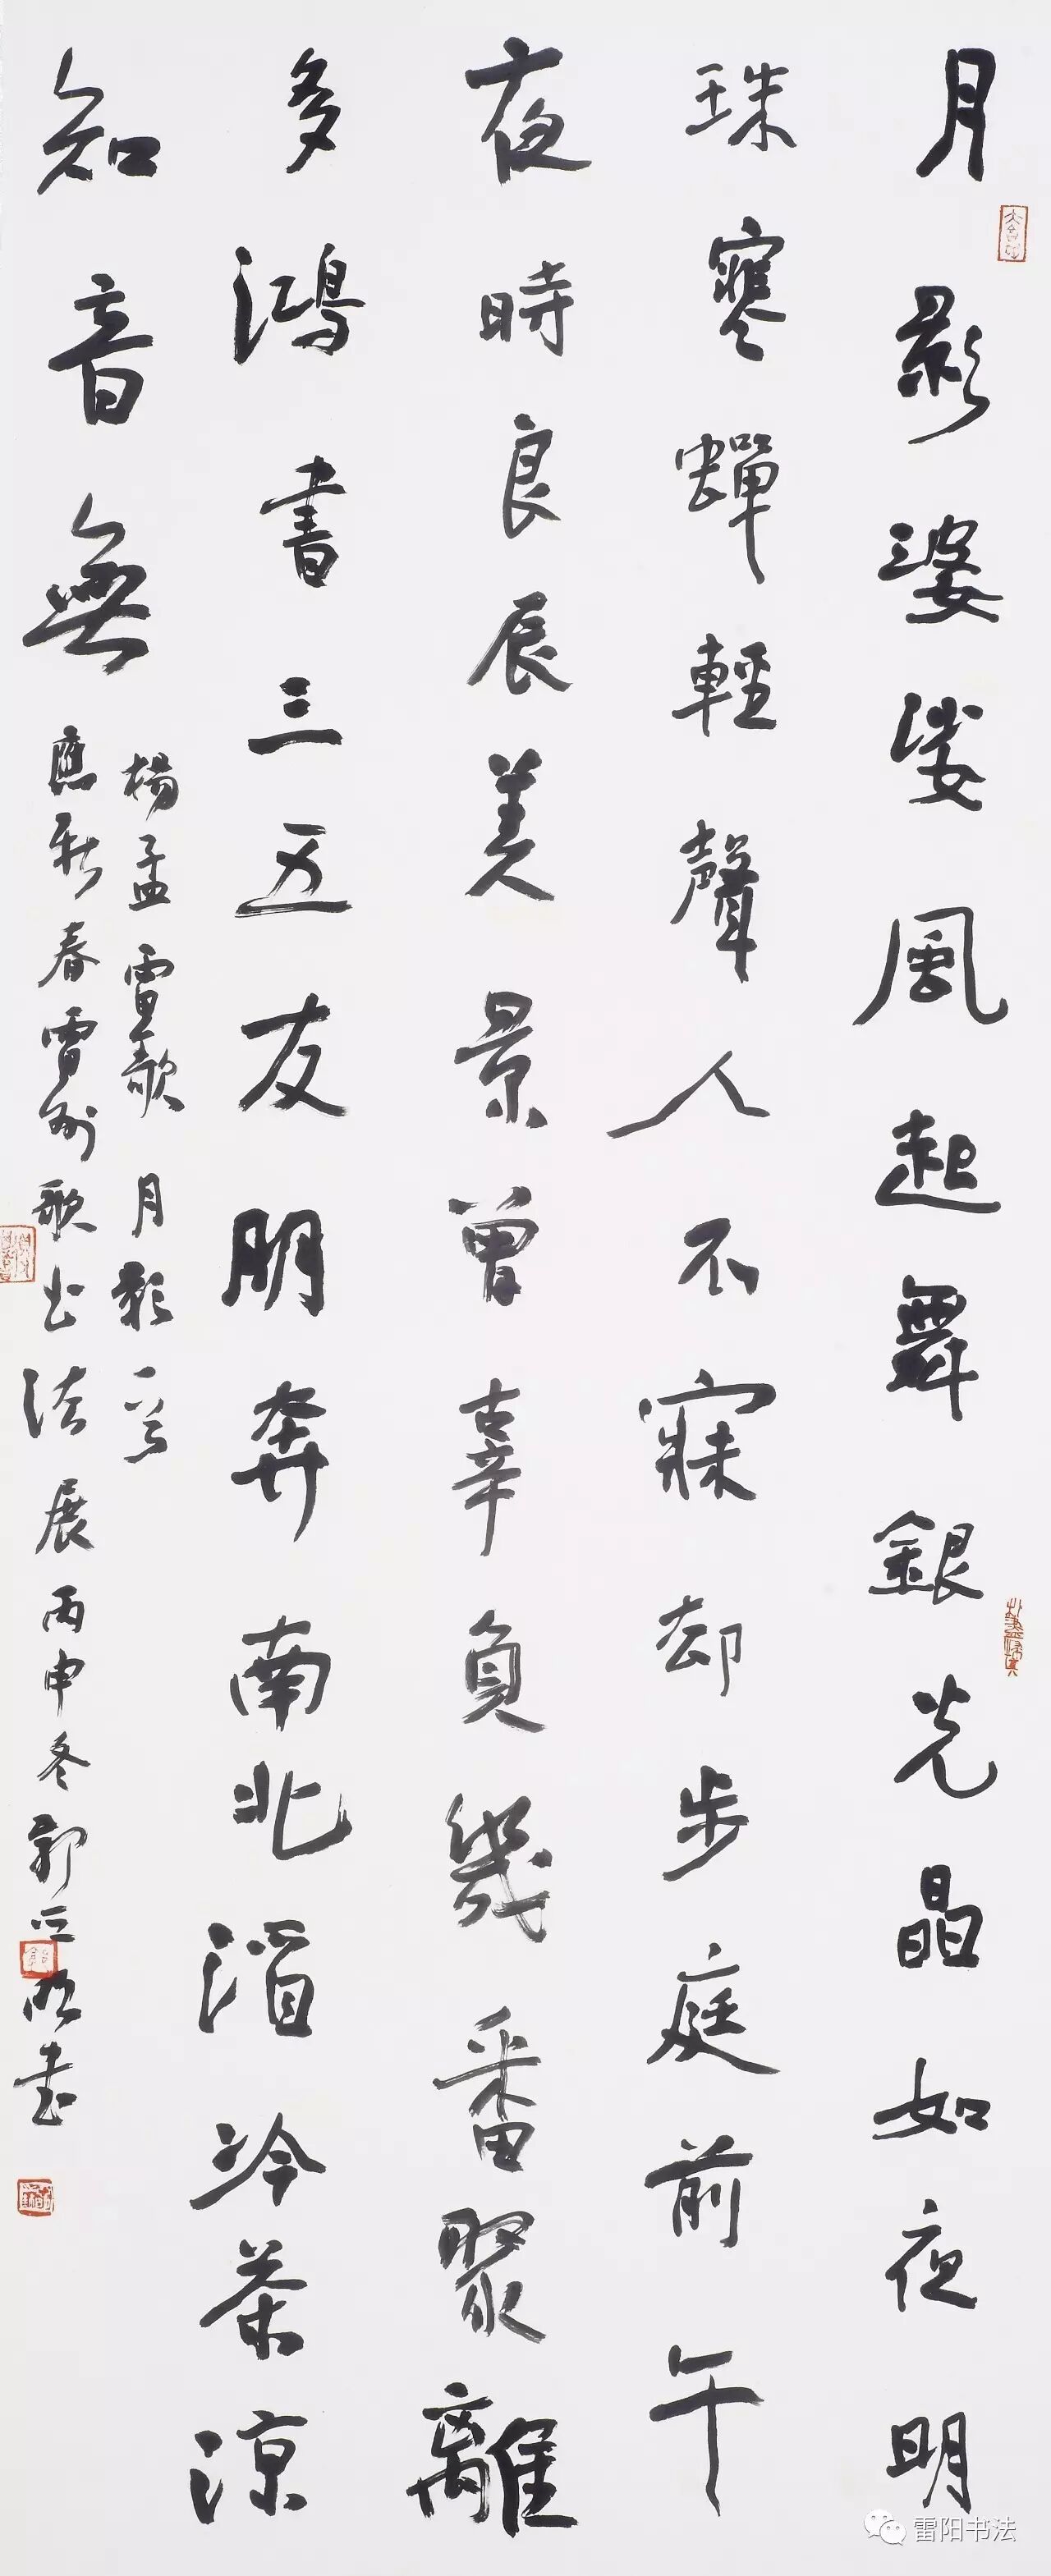 月影婆娑風起舞銀光晶如夜明
珠寒蟬輕聲人不寐却步庭前午
夜時良辰美景曾辜負幾番聚離
多鴻書三五友朋奔南北酒冷茶涼
知音無
楊孟雷歌月影一首
應新春雷州歌书法展丙申冬郭書
雷阳书法